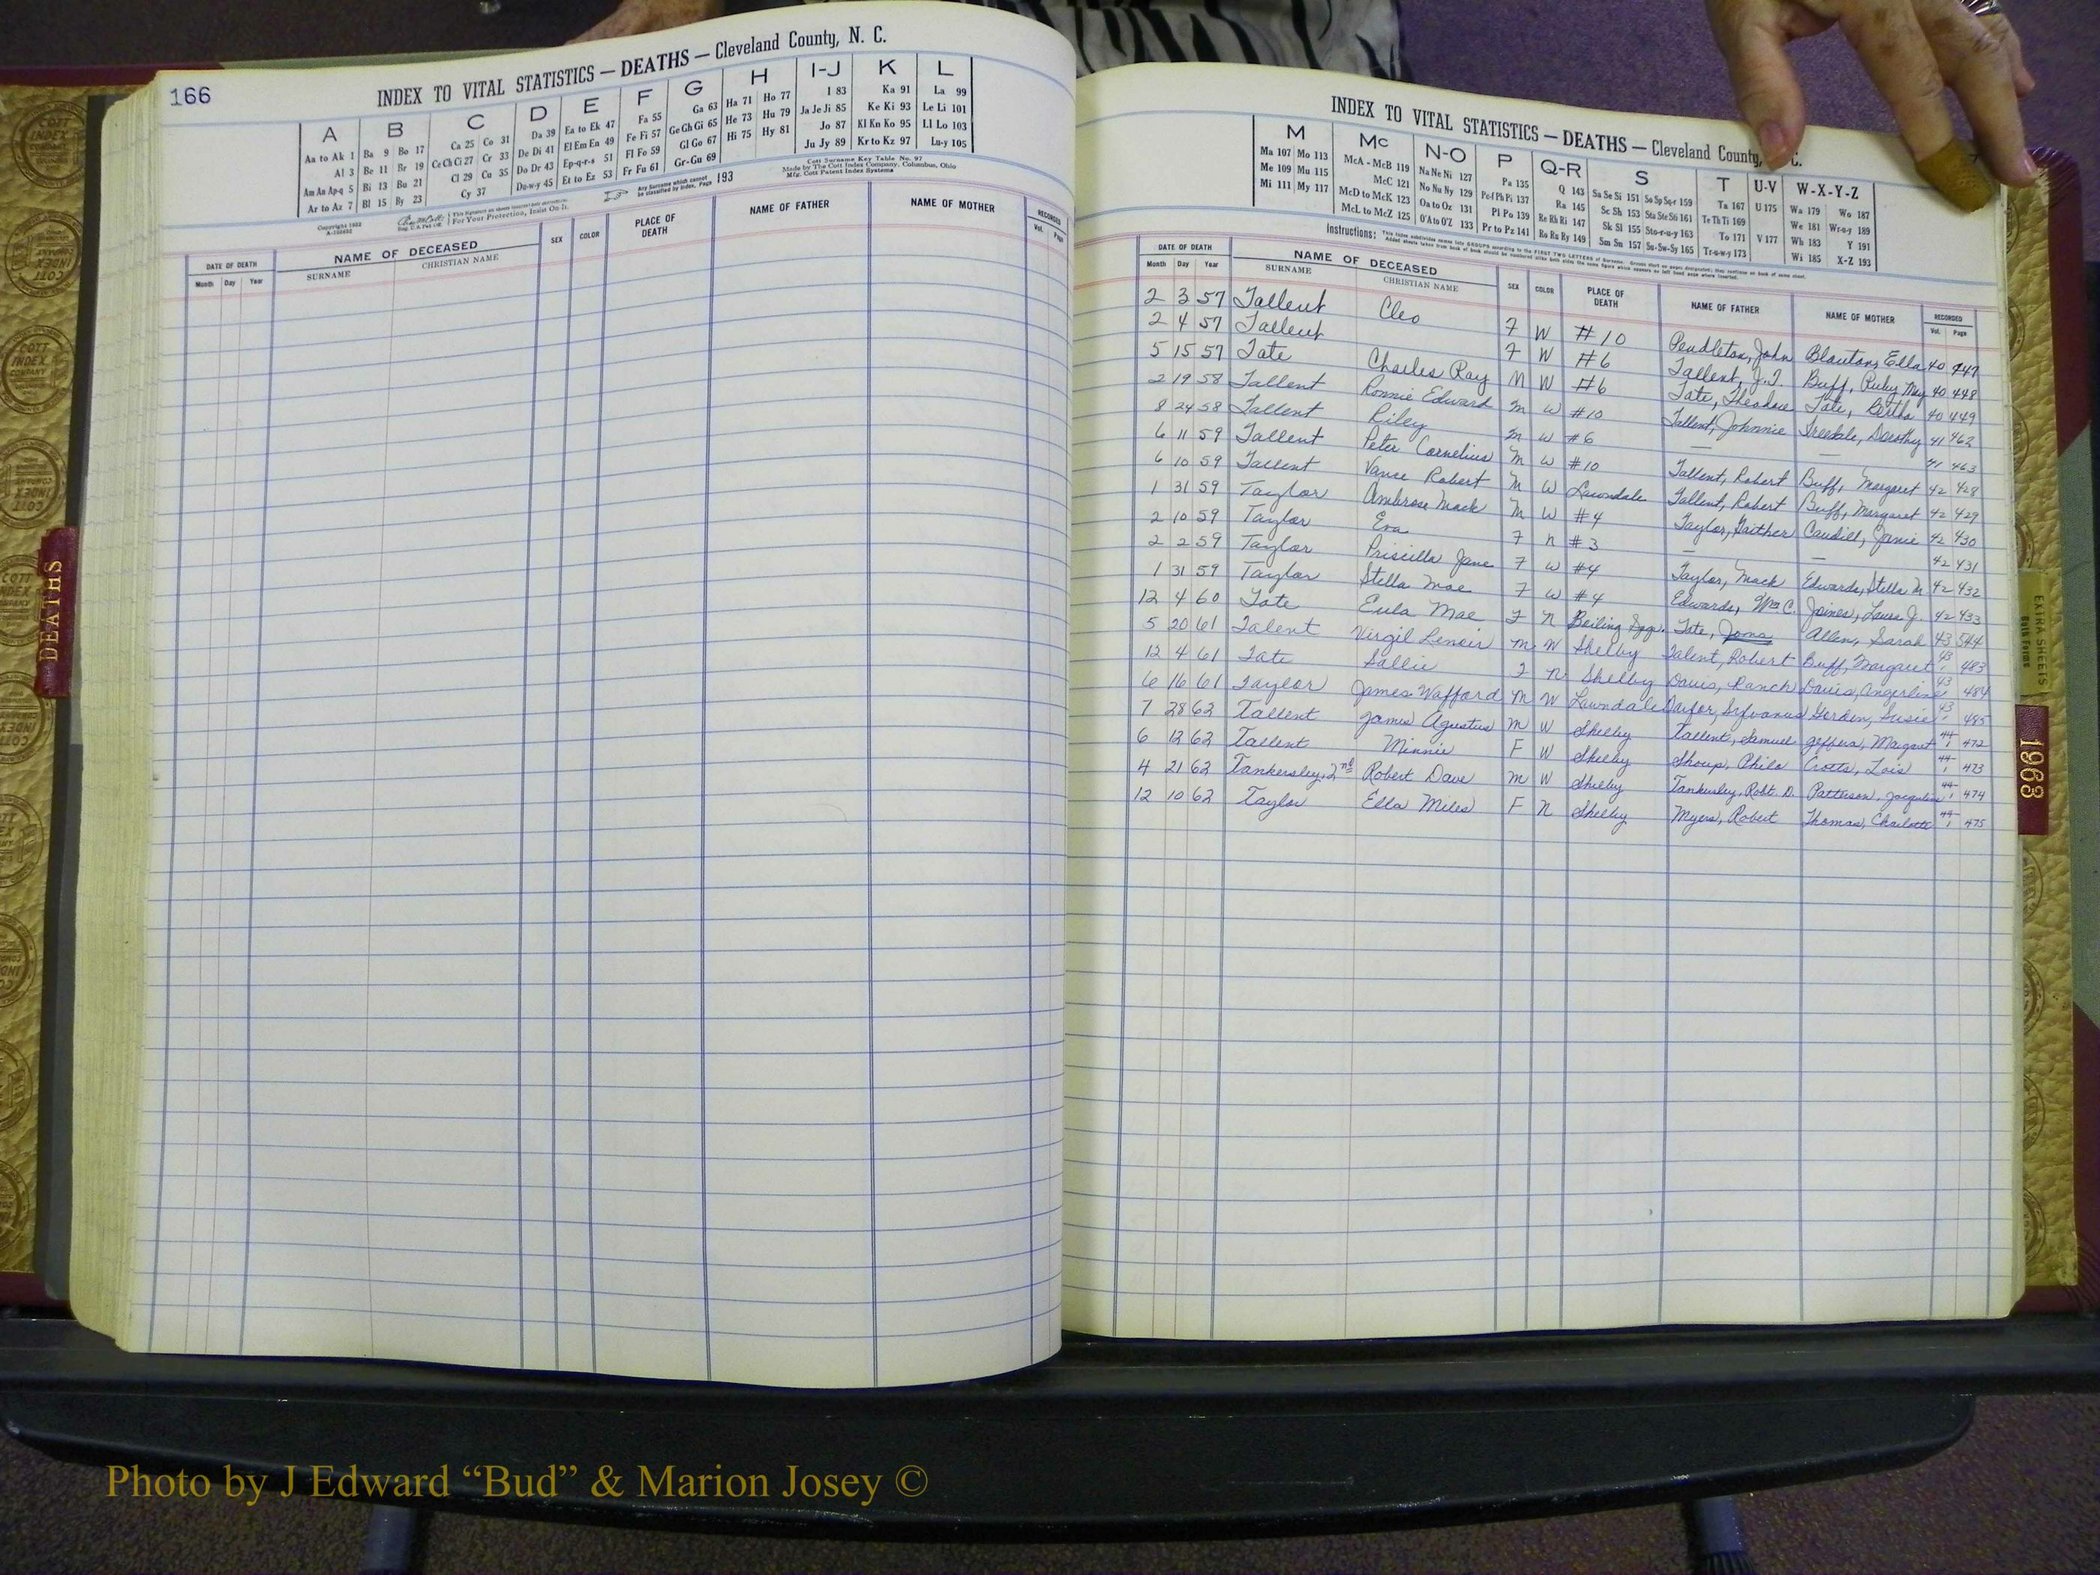 166
INDEX TO VITAL STATISTICS — DEATHS — Cleveland County, N. C.
A B C D E F G H I-J K L
Aa to Ak 1 Ba 9 Bo 17 Ca 25 Co 31 Da 39 Ea to Ek 47 Fa 55 Ga 63 Ha 71 Ho 77 I 83 Ka 91 La 99
Al 3 Be 11 Br 19 Ce Ch Ci 27 Cr 33 De Di 41 El Em En 49 Fe Fi 57 Ge Gh Gi 65 He 73 Hu 79 Ja Je Ji 85 Ke Ki 93 Le Li 101
Am An Ap-q 5 Bi 13 Bu 21 Cl 29 Cu 35 Do Dr 43 Ep-q-r-s 51 Fl Fo 59 Gl Go 67 Hi 75 Hy 81 Jo 87 Kl Kn Ko 95 Ll Lo 103
Ar to Az 7 Bl 15 By 23 Cy 37 Du-w-y 45 Et to Ez 53 Fr Fu 61 Gr-Gu 69 Ju Jy 89 Kr to Kz 97 Lu-y 105
Any Surname which cannot be classified by Index, Page 193
Cott Surname Key Table No. 97
Made by The Cott Index Company, Columbus, Ohio
Mfg. Cott Patent Index Systems
Copyright 1932
For Your Protection, Insist On It.
DATE OF DEATH NAME OF DECEASED SEX COLOR PLACE OF DEATH NAME OF FATHER NAME OF MOTHER RECORDED
Month Day Year SURNAME CHRISTIAN NAME Vol. Page
DEATHS
INDEX TO VITAL STATISTICS — DEATHS — Cleveland County, C.
M Mc N-O P Q-R S T U-V W-X-Y-Z
Ma 107 Mo 113 McA - McB 119 Na Ne Ni 127 Pa 135 Q 143 Sa Se Si 151 So Sp Sq-r 159 Ta 167 U 175 Wa 179 Wo 187
Me 109 Mu 115 McC 121 No Nu Ny 129 Pe-f Ph Pi 137 Ra 145 Sc Sh 153 Sta Ste Sti 161 Te Th Ti 169 We 181 Wr-u-y 189
Mi 111 My 117 McD to McK 123 Oa to Oz 131 Pl Po 139 Re Rh Ri 147 Sk Sl 155 Sto-r-u-y 163 To 171 V 177 Wh 183 Y 191
McL to McZ 125 O'A to O'Z 133 Pr to Pz 141 Ro Ru Ry 149 Sm Sn 157 Su-Sw-Sy 165 Tr-u-w-y 173 Wi 185 X-Z 193
Instructions:
DATE OF DEATH NAME OF DECEASED SEX COLOR PLACE OF DEATH NAME OF FATHER NAME OF MOTHER RECORDED
Month Day Year SURNAME CHRISTIAN NAME Vol. Page
2 3 57 Tallent Cleo F W #10 Pendleton, John Blanton, Ella 40 447
2 4 57 Tallent F W #6 Tallent, J.T. Buff, Ruby May 40 448
5 15 57 Tate Charles Ray M W #6 Tate, Theodore Tate, Bertha 40 449
2 19 58 Tallent Ronnie Edward M W #10 Tallent, Johnnie Dorothy 41 462
8 24 58 Tallent Riley M W #6 — — 41 463
6 11 59 Tallent Peter Cornelius M W #10 Tallent, Robert Buff, Margaret 42 428
6 10 59 Tallent Vance Robert M W Lawndale Tallent, Robert Buff, Margaret 42 429
1 31 59 Taylor Ambrose Mack M W #4 Taylor, Gaither Caudill, Janie 42 430
2 10 59 Taylor Eva F N #3 — — 42 431
2 2 59 Taylor Priscilla Jane F W #4 Taylor, Mack Edwards, Stella M 42 432
1 31 59 Taylor Stella Mae F W #4 Edwards, Wm C. Joines, Laura J. 42 433
12 4 60 Tate Eula Mae F N Boiling Spgs. Tate, Jona Allen, Sarah 43 544
5 20 61 Talent Virgil Lenoir M W Shelby Talent, Robert Buff, Margaret 43 1 483
12 4 61 Tate Sallie F N Shelby Davis, Ranch Davis, Angerline 43 1 484
6 16 61 Taylor James Wafford M W Lawndale Taylor, Sylvanus Gordon, Susie 43 1 485
7 28 62 Tallent James Agustus M W Shelby Tallent, Samuel Jeffers, Margaret 44 1 472
6 12 62 Tallent Minnie F W Shelby Shoup, Philo Crotts, Lois 44 1 473
4 21 62 Tankersley, 2nd Robert Dave M W Shelby Tankersley, Robt. D. Patterson, Jacquelin 44 1 474
12 10 62 Taylor Ella Miles F N Shelby Myers, Robert Thomas, Charlotte 44 1 475
EXTRA SHEETS
Both Forms
1963
Photo by J Edward “Bud” & Marion Josey ©